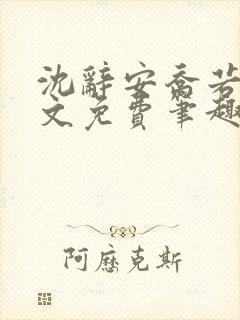 沈辞安乔若
文免费笔趣
阿歷克斯